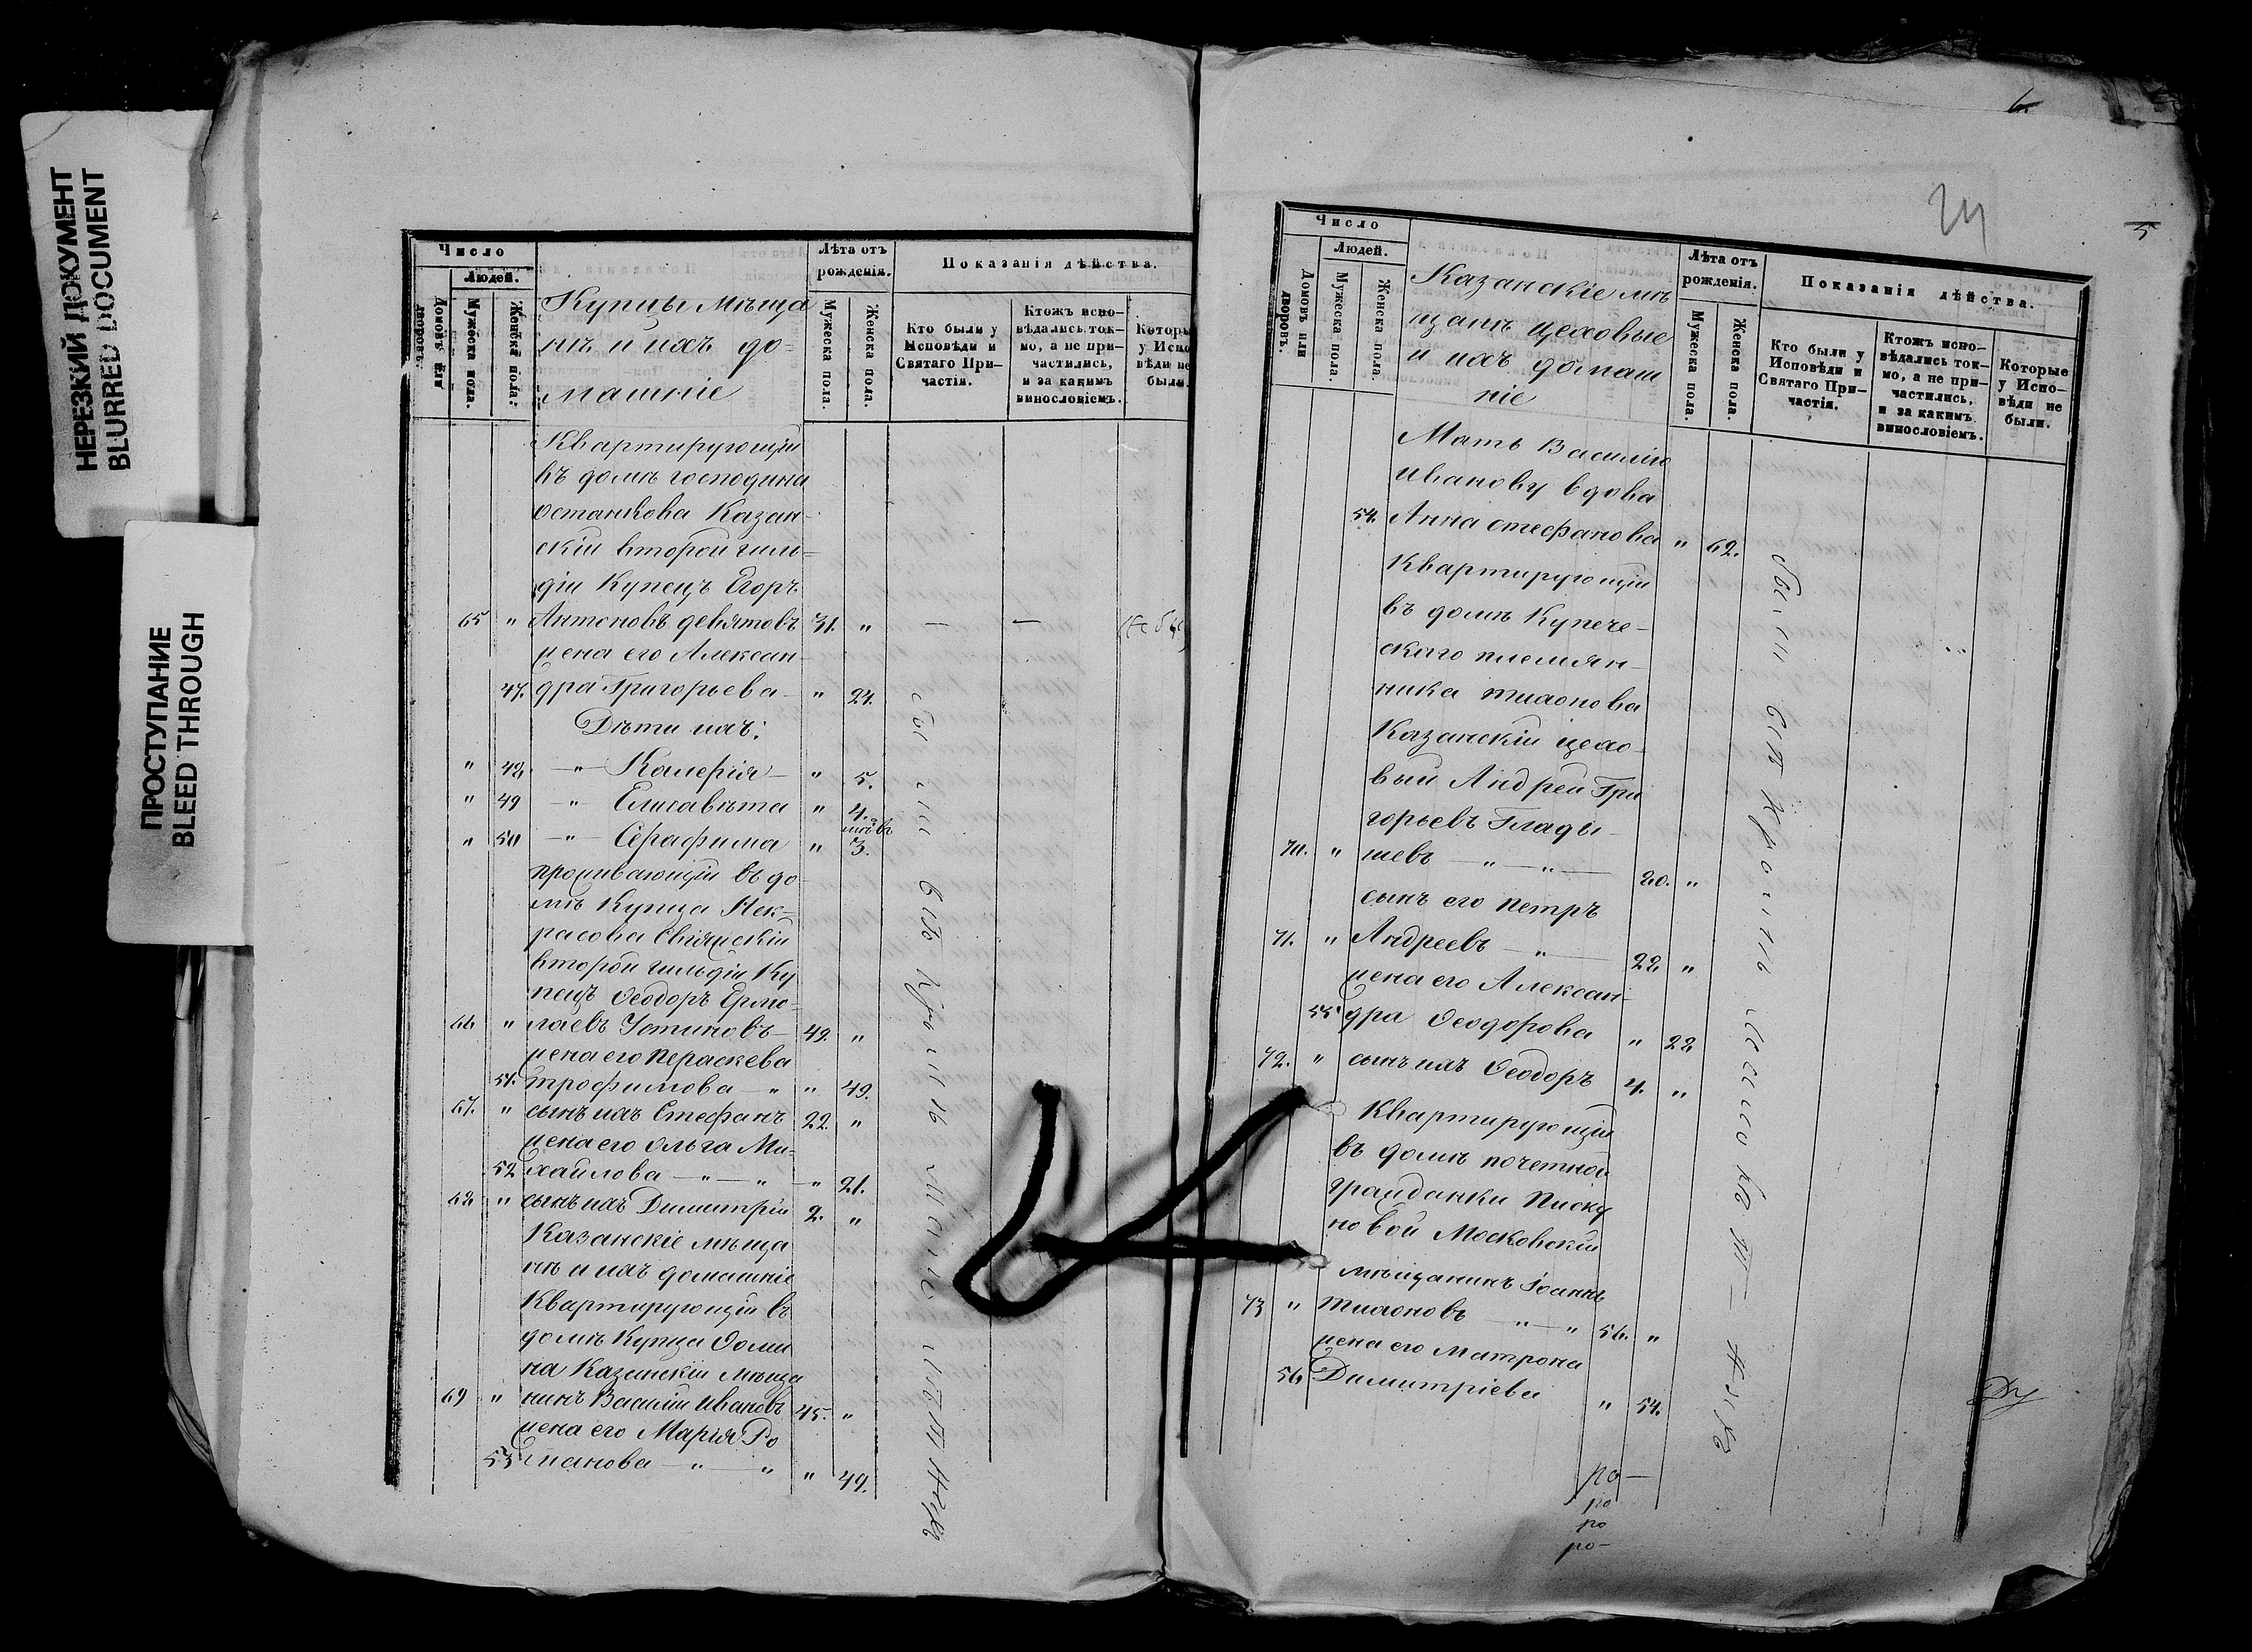 НЕРЕЗКИЙ ДОКУМЕНТ
BLURRED DOCUMENT
ПРОСТУПАНИЕ
BLEED THROUGH
Число
Людей.
Домовъ или дворовъ.
Мужеска пола.
Женска пола.
Купцы мѣща
нѣ и ихъ до-
машніе
Лѣта отъ рожденія.
Мужеска пола.
Женска пола.
Показанія дѣйства.
Кто были у Исповѣди и Святаго При-частія.
Ктожъ испо-вѣдались ток-мо, а не при-частились, и за какимъ винословіемъ.
Которы у Испо вѣди не были.
Квартирующій
въ домѣ господина
Останкова Казан-
скій второй гиль-
діи Купецъ Егоръ
65 " Антоновъ девятовъ 31. " — —
жена его Алексан-
47. дра Григорьева " 24.
Дѣти ихъ:
" 48. —"— Калерія — " 5.
" 49 —"— Елисавѣта " 4.
" 50 —"— Серафима " 3.
проживающій въ до
мѣ Купца Нек-
расова Свіяжскій
второй гильдіи Ку
пецъ Ѳеодоръ Ермо-
66 " лаевъ Устиновъ — 49. "
жена его Параскева
51. трофимова — " " 49.
67. " сынъ ихъ Стефанъ 22. "
жена его Ольга Ми-
52 хайлова — " — " " 21.
68 " сынъ ихъ Димитрій 2. "
Казанскіе мѣща
нѣ и ихъ домашніе
Квартирующій въ
домѣ Купца Ѳоми
на Казанскій мѣща
69 " нинъ Василій Ивановъ 45. "
жена его Марія Ро
53 манова — " " " 49.
были въ
5
Число
Людей.
Домовъ или дворовъ.
Мужеска пола.
Женска пола.
Казанскіе мѣ
щанѣ цеховые
и ихъ домаш
ніе
Лѣта отъ рожденія.
Мужеска пола.
Женска пола.
Показанія дѣйства.
Кто были у Исповѣди и Святаго При-частія.
Ктожъ испо-вѣдались ток-мо, а не при-частились, и за какимъ винословіемъ.
Которые у Испо-вѣди не были.
Мать Василію
Иванову вдова
54. Анна стефанова " 62.
Квартирующій
въ домѣ Купече-
скаго племян-
ника тихонова
Казанскій цехо-
вый Андрей Гри
горьевъ Глады-
70. " шевъ — " — " —
сынъ его Петръ
71. " Андреевъ — " — 22 "
жена его Алексан-
55 дра Ѳеодорова " 22
72. " сынъ ихъ Ѳеодоръ 4. "
Квартирующій
въ домѣ почетной
гражданки Писку
новой Московскій
мѣщанинъ Іоаннъ
73 " тихоновъ — " — " 56. "
жена его Матрона
56 Димитріева " 54.
были
ро —
ро
ро
ро —